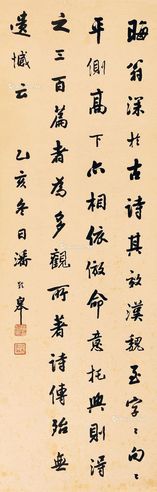 晦翁深於古詩其效漢魏至字〻句〻
平側高下亦相依倣命意托興則得
之三百篇者為多觀所著詩傳殆無
遺憾云 乙亥冬日潘齡皋